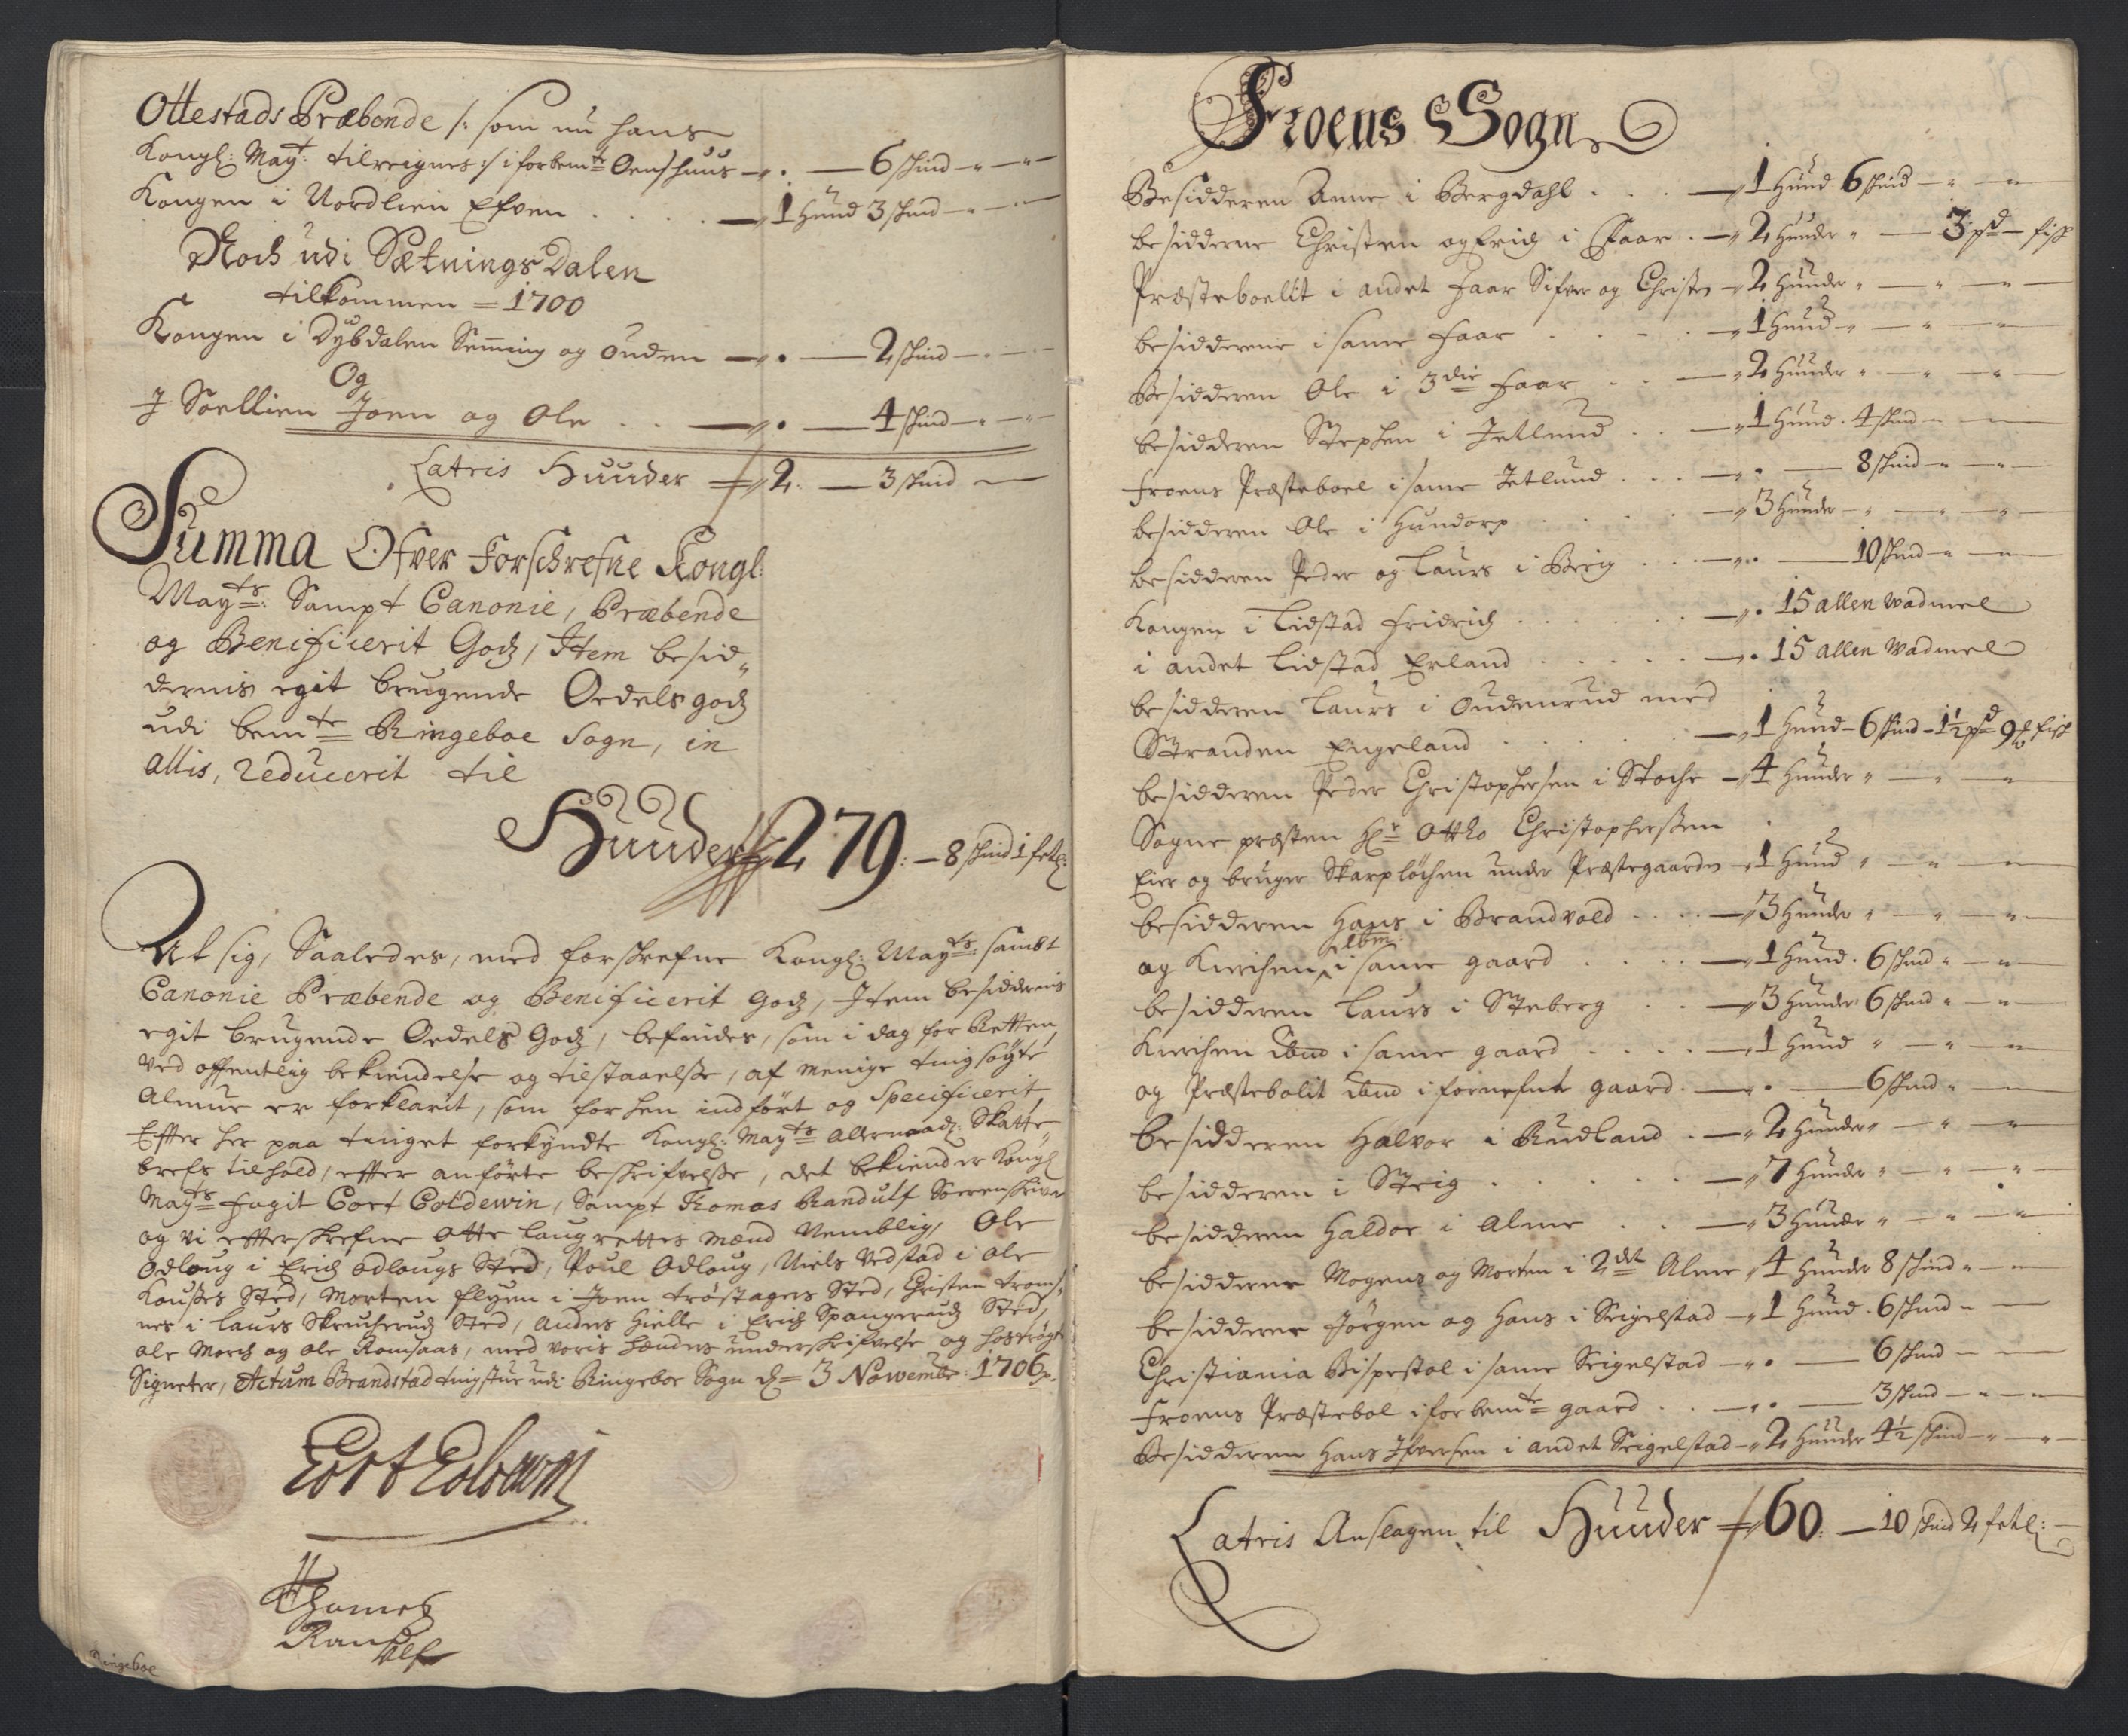 Ottestads Præbende /: som nu hans
Kongl: Mayt: tilleignes :/ i forbemte Oenshuus — 6 skind
Kongen i Nordlien Efven . . . . — 1 Hund 3 skind
Noch udi Sætnings Dalen
tilkommen = 1700
Kongen i Dybdalen Seming og Ouden — 2 skind
Og
J Soellien Joen og Ole . . — 4 skind
Latris Huuder 2. — 3 skind
Summa Ofver Forschrefne Kongl:
Mayts: Sampt Canonie, Præbende
og Benificerit Godz, Item besid„
dernis egit brugende Oedels godz
udi bemte Ringeboe Sogn, in
allis, reducerit til
Huuder 279: — 8 skind 1 fetl:
At sig, Saaledes, med forskrefne Kongl: Mayts: sambt
Canonie Præbende og Benificerit godz, Item besiddernis
egit brugende Oedels Godz, befindes, som i dag for Retten,
ved offentlig bekiendelse og tilstaaelsse, af menige tingsøgte
Almue er forklarit, som for hen indført og Specificerit,
Effter her paa tinget forkyndte Kongl: Mayts Allernaadz: Skatte„
brefs tilhold, effter anførte beskrifvelsse, det bekiender Kongl
Mayts fogit Cort Coldewin, Sampt Tomas Randulf Sorenskriver
og vi effterskrefne Otte laugrettes mænd Nemblig, Ole
Odloug i Erich Odlougs Sted, Poul Odloug, Niels Vedstad i Ole
Kousses Sted, Morten flyen i Joen trøstagers Sted, Christen troms„
nes i Laurs Skrucherudz Sted, Anders Hielle i Erich Spangerudz Sted,
Ole Morch og Ole Romsaas, med voris hænders underskrifvelse og hostrøgte
Signeter, Actum Brandstad tingstue udi Ringeboe Sogn d= 3 November: 1706.
Cort Coldewin
Thomes
Randulf
Ringeboe
Froens Sogn
Besidderen Anne i Bergdahl . . . — 1 Hund 6 skind
besidderne Christen og Erich i Faar . — 2 Hunder — 3 pd fisk
Præsteboelit i andet faar Sifver og Christen — 2 Hunder
besidderne i same faar . . . — 1 Hund
Besidderen Ole i 3die faar . . — 2 Hunder
besidderen Stephen i Jetlund . . — 1 Hund . 4 skind
froens Præsteboel i same Jetlund . . . — 8 skind
besidderen Ole i Hundorp . . . . — 3 Hunder
besidderen Peder og Laurs i Berig . . . — 10 skind
Kongen i Lidstad Fridrich . . . . . . — 15 allen Wadmel
i andet Lidstad Erland . . . . . — 15 allen Wadmel
besidderen Laurs i Oudenrud med
Stranden Engeland . . . . . — 1 Hund – 6 skind – 1½ pd 9 fisk
besidderen Peder Christophersen i Stoche — 4 Hunder
Sogne præsten Hr Ottho Christopherssen
Eier og bruger Skarpløchen under Præstegaarden — 1 Hund
besidderen Hans i Brandvold . . . . — 3 Hunder
og Kirchen ibm: i same gaard . . . . — 1 Hund . 6 skind
besidderen Laurs i Steberg . . — 3 Hunder 6 skind
Kirchen ibm i same gaard . . . . — 1 Hund
og Præstebolit ibm i fornefnte gaard . — 6 skind
besidderen Halvor i Rudland . — 2 Hunder
besidderen i Steig . . . . . . — 7 Hunder
besidderen Haldor i Alme . . . — 3 Hunder
besidderne Mogens og Morten i 2det Alme 4 Hunder 8 skind
besidderne Jørgen og Hans i Seigelstad — 1 Hund . 6 skind
Christiania Bispestol i same Seigelstad — 6 skind
froens Præstebol i forbemte gaard . . — 3 skind
Besidderen Hans Ifversen i andet Seigelstad — 2 Hunder 4½ skind
Latris Anslagen til Huuder 60: — 10 skind 2 fetl: